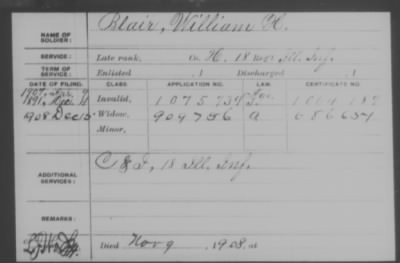 NAME OF SOLDIER: Blair, William H.
SERVICE: Late rank, Co. H, 18 Reg't Ill. Inf.
TERM OF SERVICE: Enlisted , 1 Discharged , 1
DATE OF FILING. CLASS. APPLICATION NO. LAW. CERTIFICATE NO.
1907,
1891, Dec 11 Invalid, 1075737
1908 Dec 15 Widow, 909756 a 686654
Minor,
ADDITIONAL SERVICES: C & I, 18 Ill. Inf.
REMARKS:
Died Nov 9, 1908, at